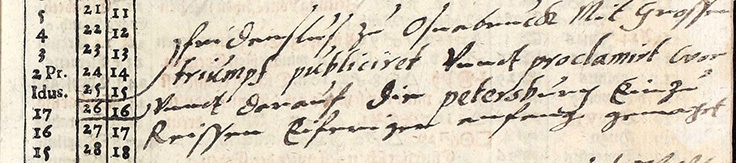 5 21 11
4 22 12 fridenslus zu Osnabruck Mit Grossen
3 23 13 triumpf publiciret Vundt proclamirt
2 Pr. 24 14
Idus. 25 15 Vundt darauf die petersburg Einzu
17 26 16 Reissen Eiferiger anfang gemacht
16 27 17
15 28 18